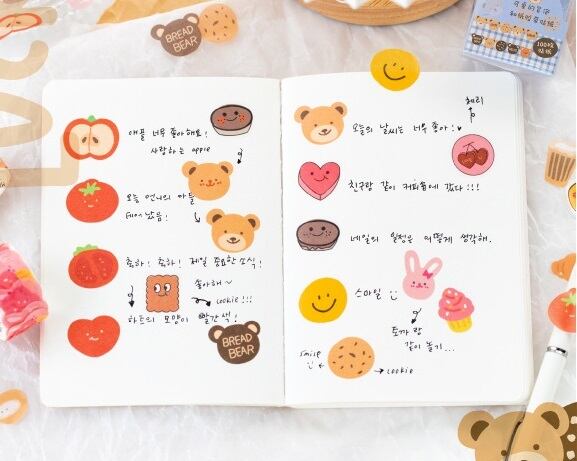 BREAD
BEAR
100枚
贴纸
애플 너무 좋아해요!
사랑하는 apple
오늘 언니의 아들
태어 났음!
축하! 축하! 제일 중요한 소식!
좋아해~
cookie!!!
하트의 모양이 빨간색!
BREAD
BEAR
체리
오늘의 날씨는 너무 좋아!
친구랑 같이 커피숍에 갔다!!!
네일의 일정은 어떻게 생각해.
스마일
토끼랑
같이 놀기...
smile
cookie